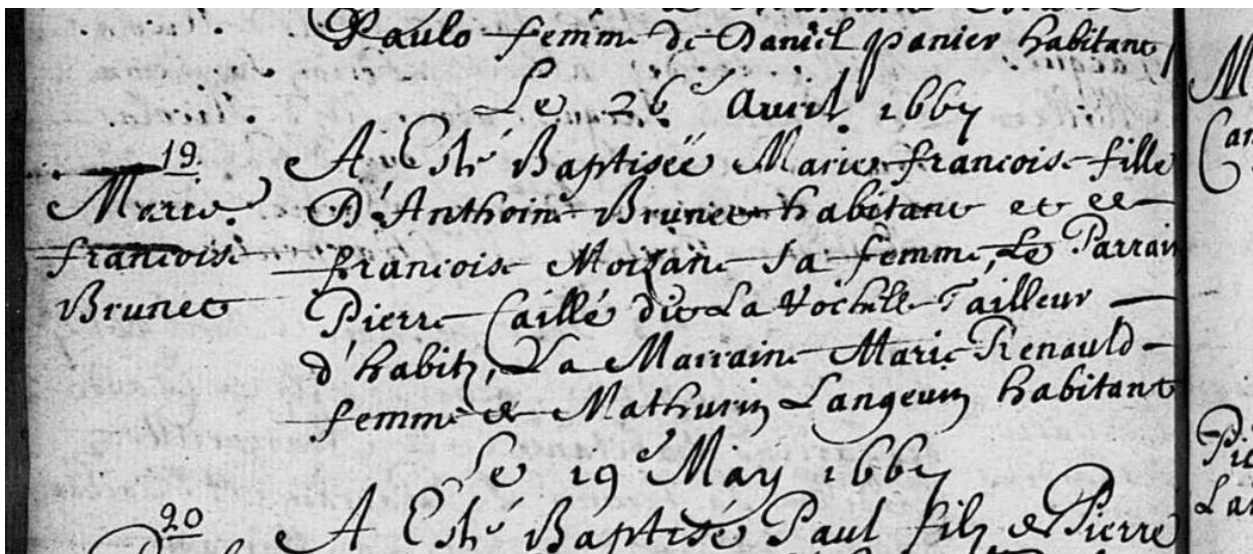 Paulo femme de Daniel panier habitant
Le 26e Auril 1667
19.
Marie
francoise
Brunet
A Esté Baptisée Marie francoise fille
D'Anthoine Brunet habitant et de
francoise Moizane sa femme, Le Parrain
Pierre Caillé dit La Rochelle Tailleur
d'habitz, La Marraine Marie Renauld
femme de Mathurin Langeuin habitant
Le 19e May 1667
20
A Esté Baptisé Paul filz de Pierre